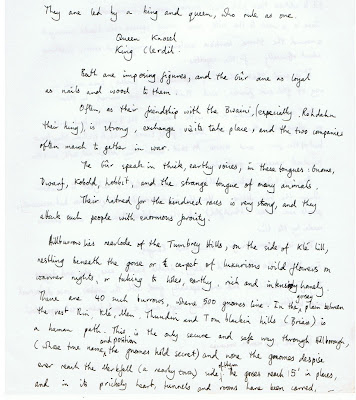 They are led by a king and queen, who rule as one.
Queen Knossl
King Clerdil.
Both are imposing figures, and the Gûr are as loyal
as nails and wood to them.
Often, as their friendship with the Bwaini, (especially Rohdahn
their king), is strong, exchange visits take place, and the two companies
often march to gether in war.
The Gûr speak in thick, earthy voices, in these tongues: Gnome,
Dwarf, Kobold, hobbit, and the strange tongue of many animals.
Their hatred for the kindred races is very strong, and they
attack such people with enormous ferocity.
lies of the Tumbrey Hills, on the side of Klé hill,
nestling beneath the gorse or carpet of luxurious wild flowers on
warmer nights, or taking to holes, earthy, rich and homely.
There are 40 such burrows, where 500 gnomes live. In the gorsey plain between
the rest Rin, Klé, Men. Thundin and Tom blackin hills (Brias) is
a human path. This is the only secure and safe way through
(whose true name, and position the gnomes hold secret) and none the gnomes despise
ever reach the (a nearby town) side. Often the gorse reach 15' in places,
and in its prickely heart, tunnels and rooms have been carved.